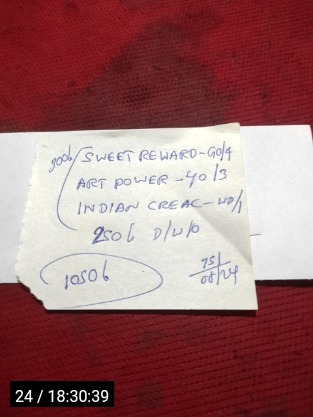 900b SWEET REWARD-GO/4
ART POWER -40/3
INDIAN CREAC-40/1
250b D/U/O
1050b
75/
08/24
24 / 18:30:39